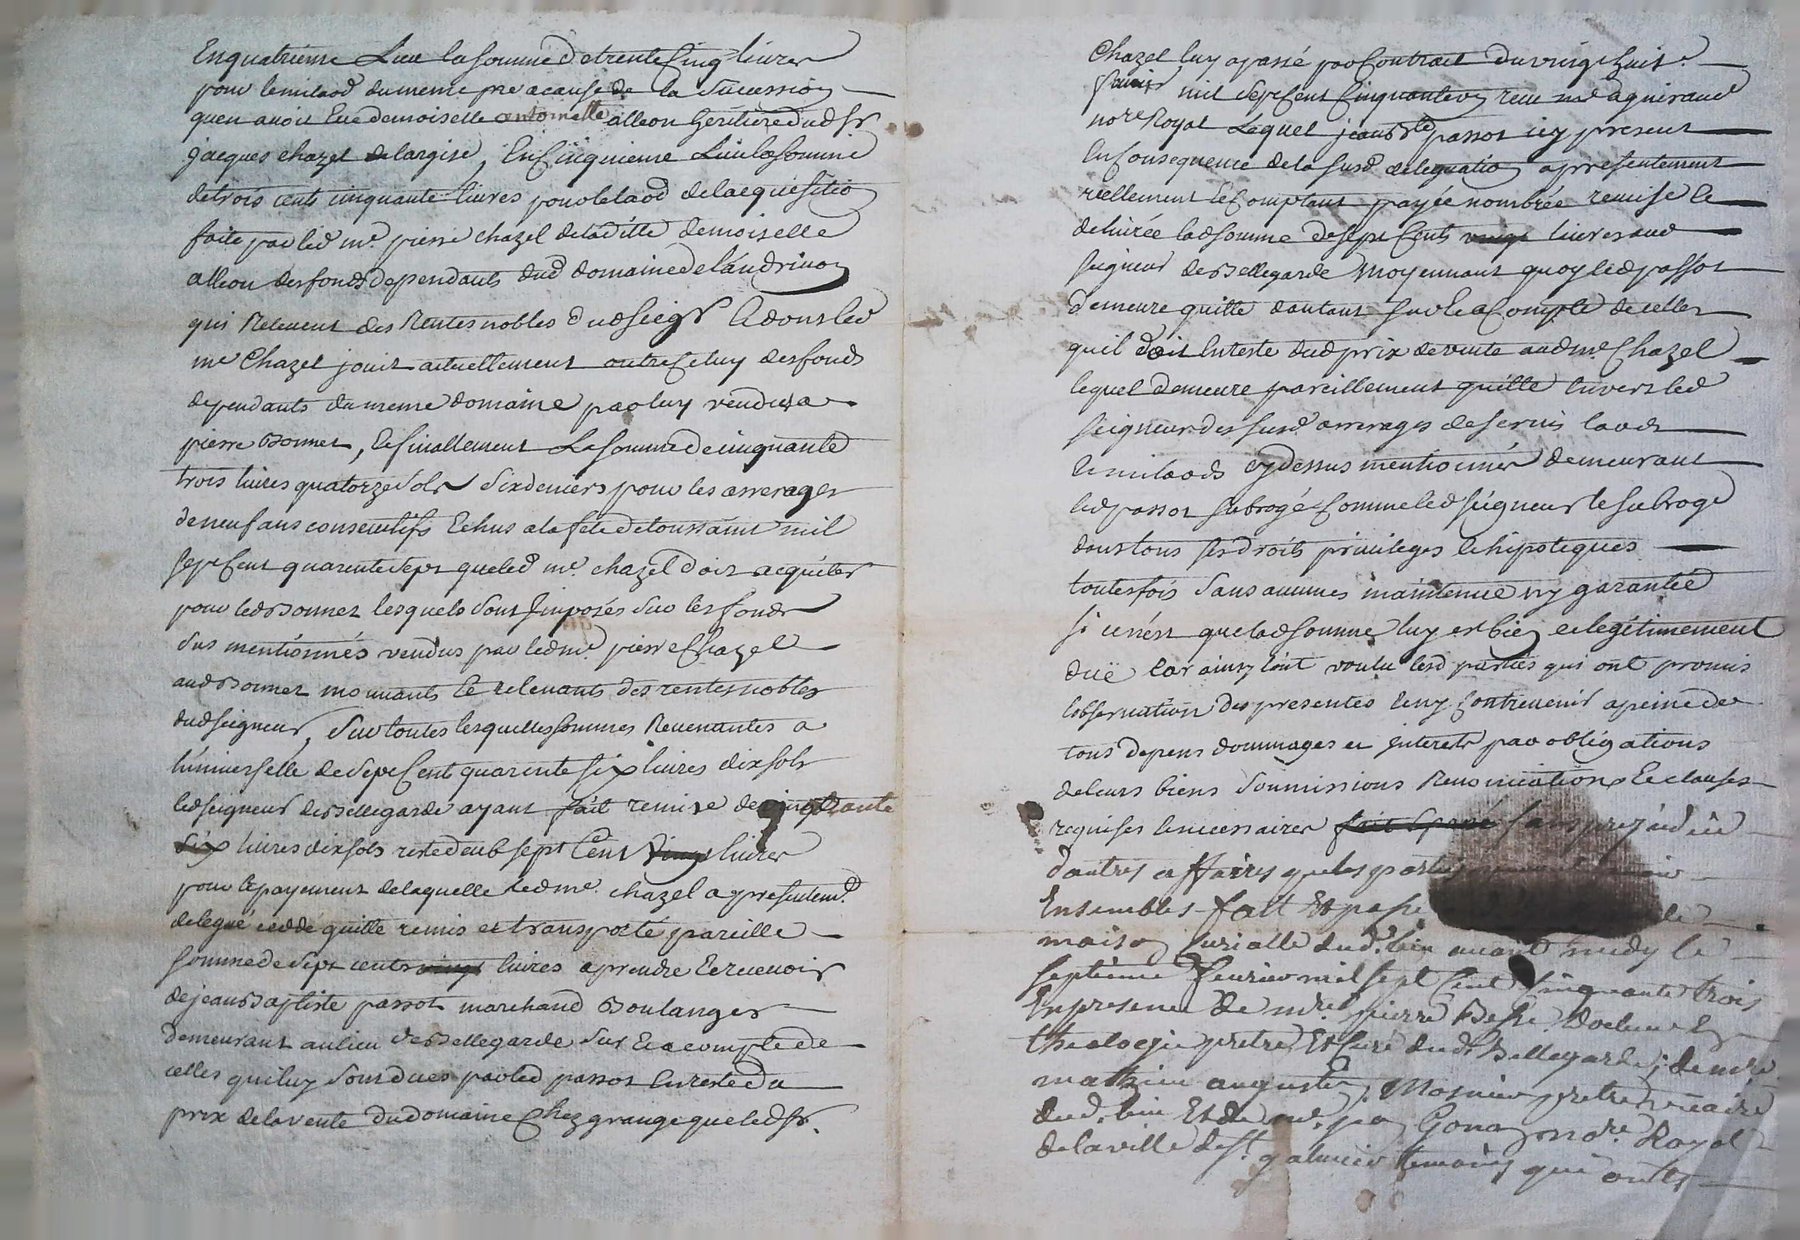 Enquatrieme Lieu la somme de trente Cinq livres
pour le milaod du meme pre a cause de la sucession
quen avoit Eue demoiselle antoinette alleon heritiere dud sr
jacques chazel delargise, En Cinquieme Lieu la somme
de trois cents cinquante livres pour le laod de lacquisitio
faite par led me pierre chazel de laditte demoiselle
alleon des fonds dependants dud domaine de landrivon
qui Relevent des Rentes nobles dud seigr & dont led
me Chazel jouit actuellement outre Celuy des fonds
dependants du meme domaine par luy vendus a
pierre Bonnet, & finallement La somme de cinquante
trois livres quatorze sols six deniers pour les arrerages
de neuf ans consecutifs Echus a la fete de toussaint mil
sept Cent quarente sept que led me chazel doit acquiter
pour led Bonnet lesquels sont Imposés sur les fonds
sus mentionnés vendus par led me pierre Chazel
aud Bonnet mouvants & relevants des rentes nobles
dud seigneur, sur toutes lesquelles sommes Revenantes a
luniverselle de sept Cent quarente six livres dix sols
led seigneur de Bellegarde ayant fait remise de
six livres dix sols reste deub sept Cent vingt livres
pour le payement de laquelle led me chazel a presentemt
delegué cedé quitté remis et transporté pareille
somme de sept cents vingt livres a prendre & recevoir
de jean Baptiste passot marchand Boulanger
demeurant au lieu de Bellegarde sur & a compte de
celles qui luy sont dues par led passot En reste du
prix de la vente du domaine Chez grange que led sr
Chazel luy a passé par Contrait du vingt huit
fevrier mil sept Cent Cinquante reçu me aguiraud
nore Royal Lequel jean Bte passot icy present
En Consequence de la susd delegation a presentement
reellement & Comptant payée nombrée remise &
delivrée lad somme de sept Cents vingt livres aud
seigneur de Bellegarde moyennant quoy led passot
demeure quitte dautant sur & a Compte de celles
quil doit En reste dud prix de vente aud me Chazel
lequel demeure pareillement quitte Envers led
seigneur des susd arrerages de servis laods
& milaods cy dessus mentionnés demeurant
led passot subrogé Comme led seigneur le subroge
dans tous ses droits privileges & hipoteques
toutesfois sans aucunes maintenue ny garantie
si ce nest que lad somme luy est bien et legitimement
duë Car ainsy lont voulu lesd parties qui ont promis
lobservation des presentes & ny Contrevenir a peine de
tous depens dommages et Interets par obligations
de leurs biens soumissions Renonciations & clauses
requises & necessaires fait & passé sans prejudice
dautres affaires que les parties
Ensembles fait & passé
maison Curialle dud. lieu avant midy le
septieme fevrier mil sept Cent Cinquante trois
En presence de mre pierre Docteur En
theologie pretre & Curé dud. Bellegarde, de mre
mathieu augustin Mosnier pretre vicaire
dud. lieu Et de me. Gonon nore. Royal
de la ville de st. galmier temoins qui ont